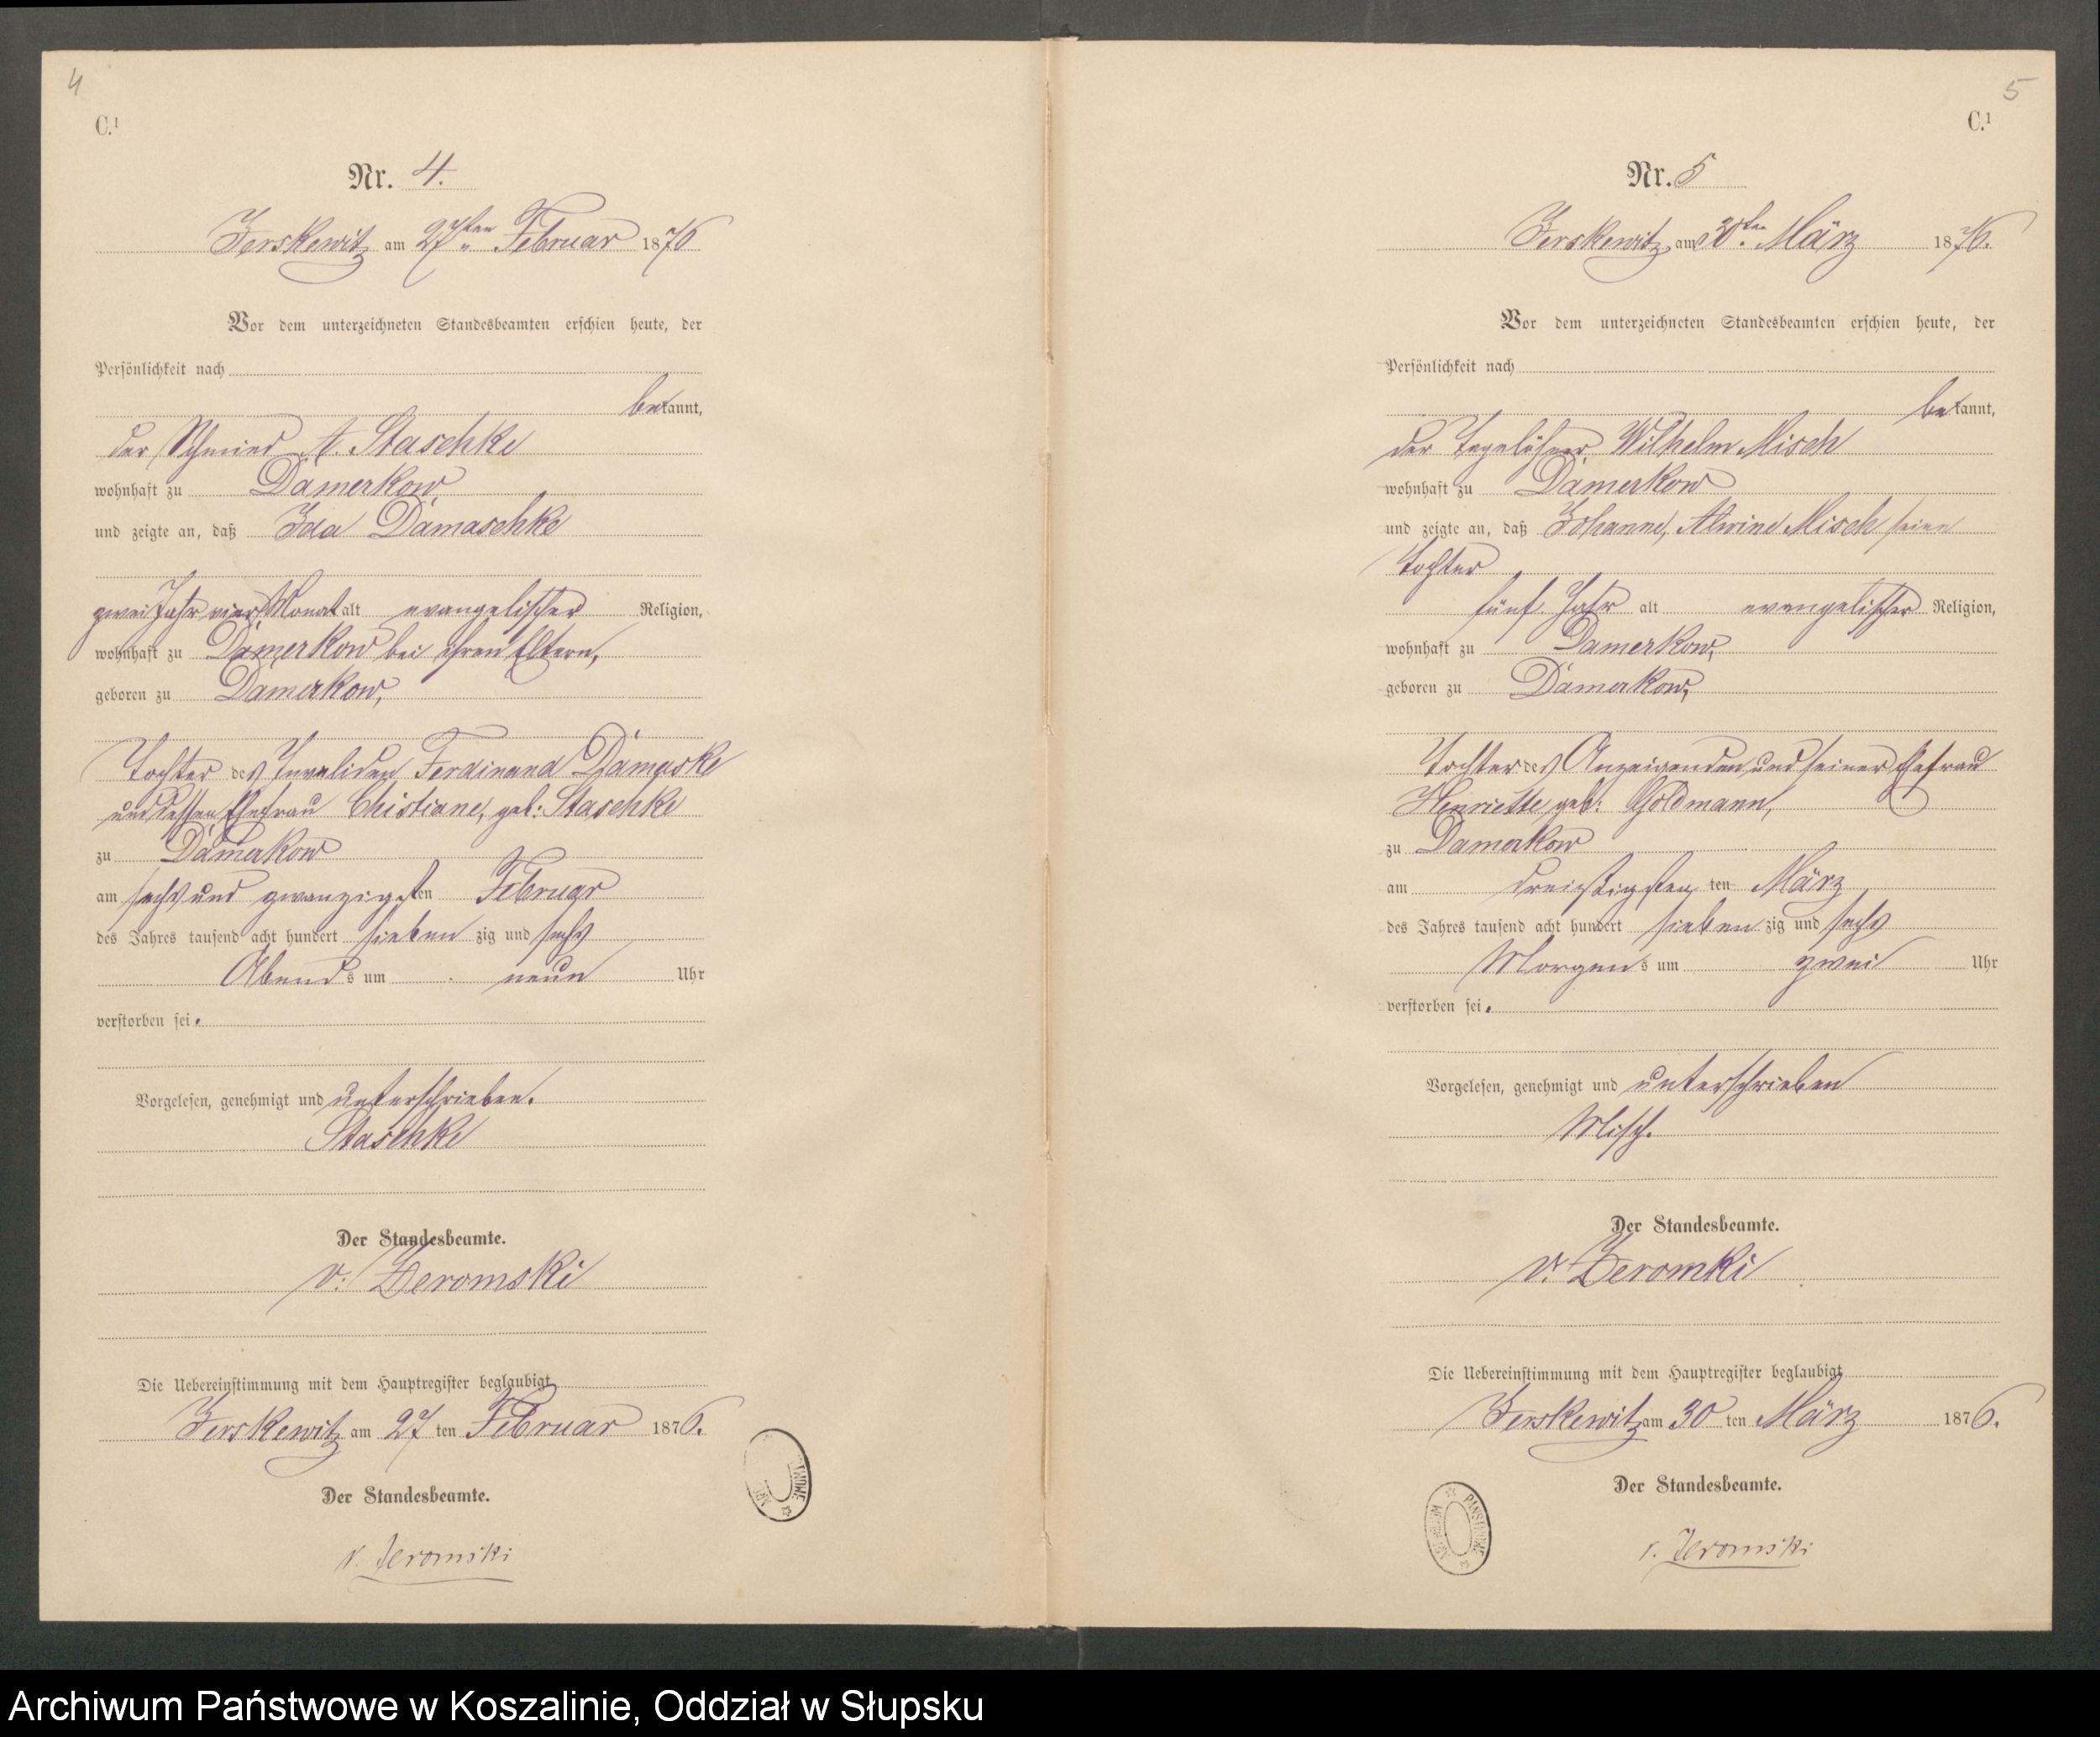 4
C.¹
Nr. 4.
Zerskewitz am 27ten Februar 1876
Vor dem unterzeichneten Standesbeamten erschien heute, der
Persönlichkeit nach
bekannt,
der Schmied A. Staschke
wohnhaft zu Damerkow
und zeigte an, daß Ida Damaschke
zwei Jahr vier Monat alt evangelischer Religion,
wohnhaft zu Damerkow bei ihren Eltern,
geboren zu Damerkow,
Tochter des Invaliden Ferdinand Damaske
und dessen Ehefrau Chistiane, geb: Staschke
zu Damerkow
am sechs und zwanzigsten Februar
des Jahres tausend acht hundert siebenzig und sechs
Abends um neun Uhr
verstorben sei.
Vorgelesen, genehmigt und unterschrieben.
Staschke
Der Standesbeamte.
v: Zeromski
Die Uebereinstimmung mit dem Hauptregister beglaubigt
Zerskewitz am 27 ten Februar 1876.
Der Standesbeamte.
v. Zeromski
5
C.¹
Nr. 5
Zerskewitz am 30ten März 1876.
Vor dem unterzeichneten Standesbeamten erschien heute, der
Persönlichkeit nach
bekannt,
der Tagelöhner Wilhelm Misch
wohnhaft zu Damerkow
und zeigte an, daß Johanne, Alwine Misch seine
Tochter
fünf Jahr alt evangelischer Religion,
wohnhaft zu Damerkow,
geboren zu Damerkow,
Tochter des Anzeigenden und seiner Ehefrau
Henriette geb: Goldmann,
zu Damerkow
am dreißigsten ten März
des Jahres tausend acht hundert siebenzig und sechs
Morgens um zwei Uhr
verstorben sei.
Vorgelesen, genehmigt und unterschrieben
Misch.
Der Standesbeamte.
v. Zeromki
Die Uebereinstimmung mit dem Hauptregister beglaubigt
Zerskewitz am 30 ten März 1876.
Der Standesbeamte.
v. Zeromski
ARCHIWUM PAŃSTWOWE
Archiwum Państwowe w Koszalinie, Oddział w Słupsku